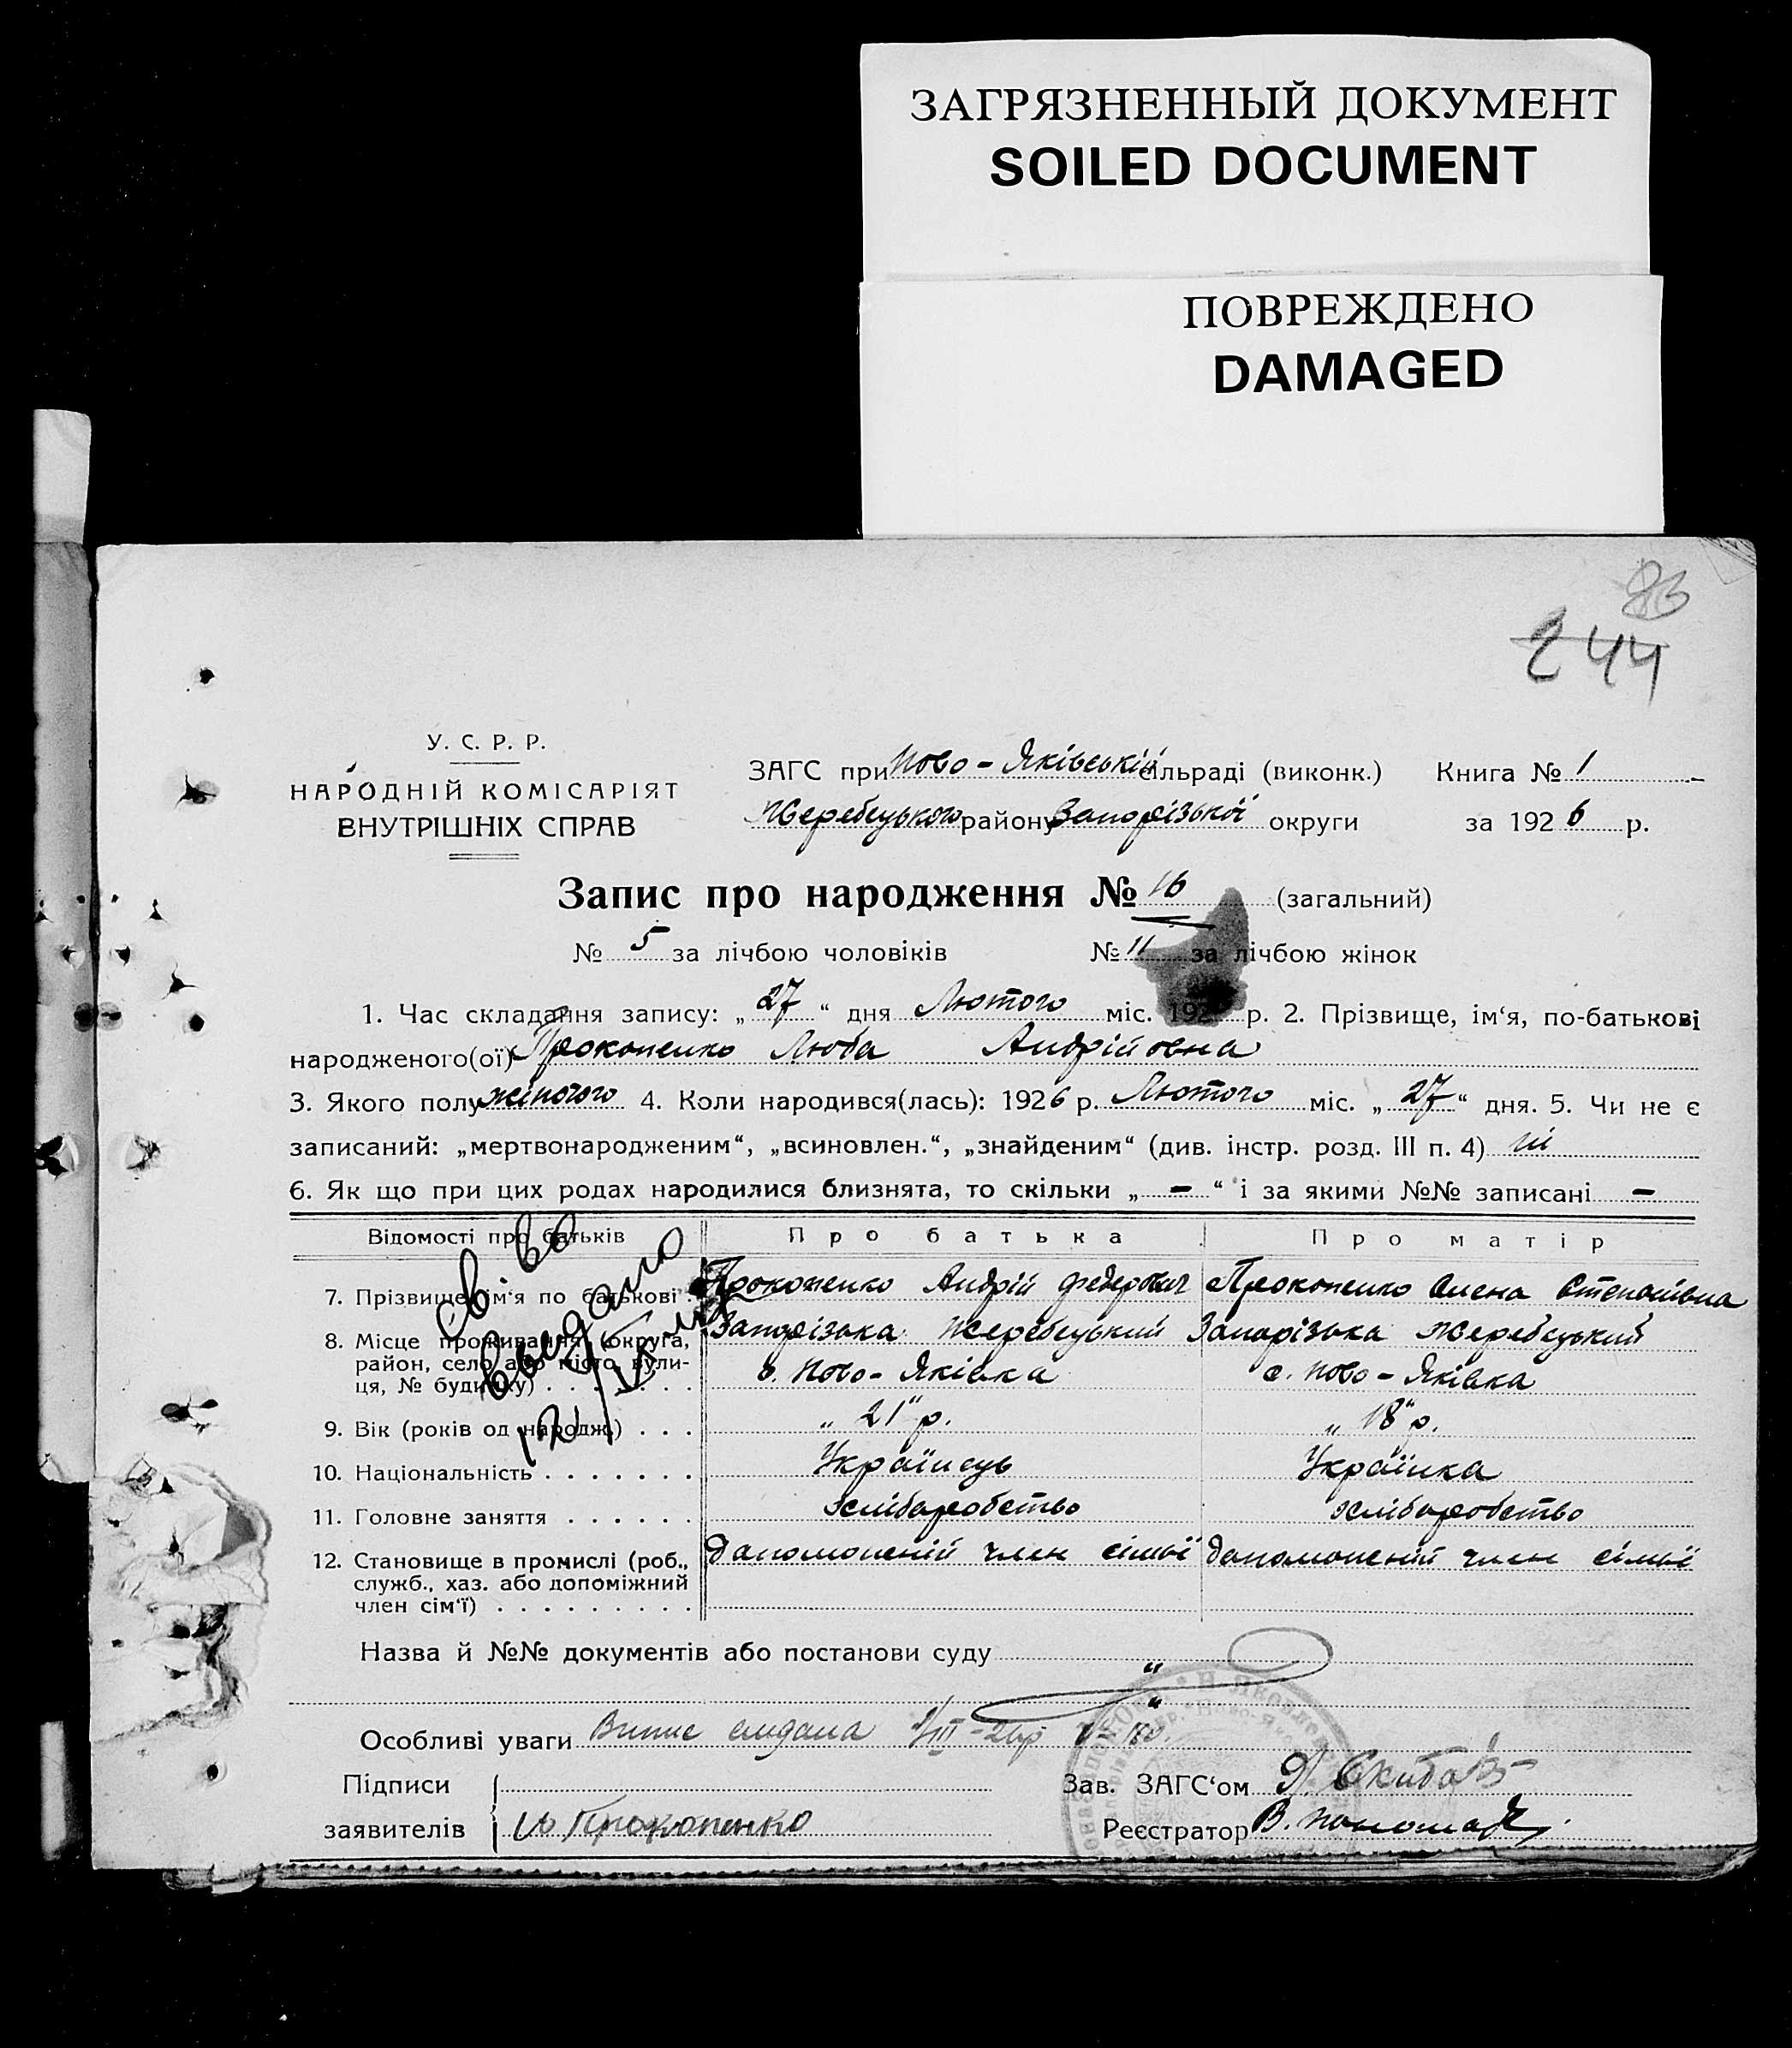 ЗАГРЯЗНЕННЫЙ ДОКУМЕНТ
SOILED DOCUMENT
ПОВРЕЖДЕНО
DAMAGED
83
244
У. С. Р. Р.
НАРОДНІЙ КОМІСАРІЯТ
ВНУТРІШНІХ СПРАВ
ЗАГС при Ново-Яківській сільраді (виконк.) Книга № 1
Жеребецького району Запорізької округи за 1926 р.
Запис про народження № 16 (загальний)
№ 5 за лічбою чоловіків № 11 за лічбою жінок
1. Час складання запису: „27“ дня Лютого міс. 192 р. 2. Прізвище, ім‘я, по-батькові
народженого(ої) Прокопенко Люба Андрійовна
3. Якого полу жіночого 4. Коли народився(лась): 1926 р. Лютого міс. „27“ дня. 5. Чи не є
записаний: „мертвонародженим“, „всиновлен.“, „знайденим“ (див. інстр. розд. III п. 4) ні
6. Як що при цих родах народилися близнята, то скільки „ — “ і за якими №№ записані —
Відомості про батьків Про батька Про матір
7. Прізвище ім‘я по батькові Прокопенко Андрій Федорович Прокопенко Олена Степанівна
8. Місце проживання (округа, Запорізька Жеребецький Запорізька Жеребецький
район, село або місто, вули- с. Ново-Яківка с. Ново-Яківка
ця, № будинку) . . . . . . .
9. Вік (років од народж.) . . . „21“ р. „18“ р.
10. Національність . . . . . . . Українець Українка
11. Головне заняття . . . . . . хліборобство хліборобство
12. Становище в промислі (роб., допоможній член сімьї допоможній член сімьї
служб., хаз. або допоміжний
член сім‘ї) . . . . . . . . .
Св во
выдано
Назва й №№ документів або постанови суду
Особливі уваги Випис видана /III-26р
Підписи
заявителів Прокопенко
Зав. ЗАГС‘ом Скиба
Реєстратор В. Пономар